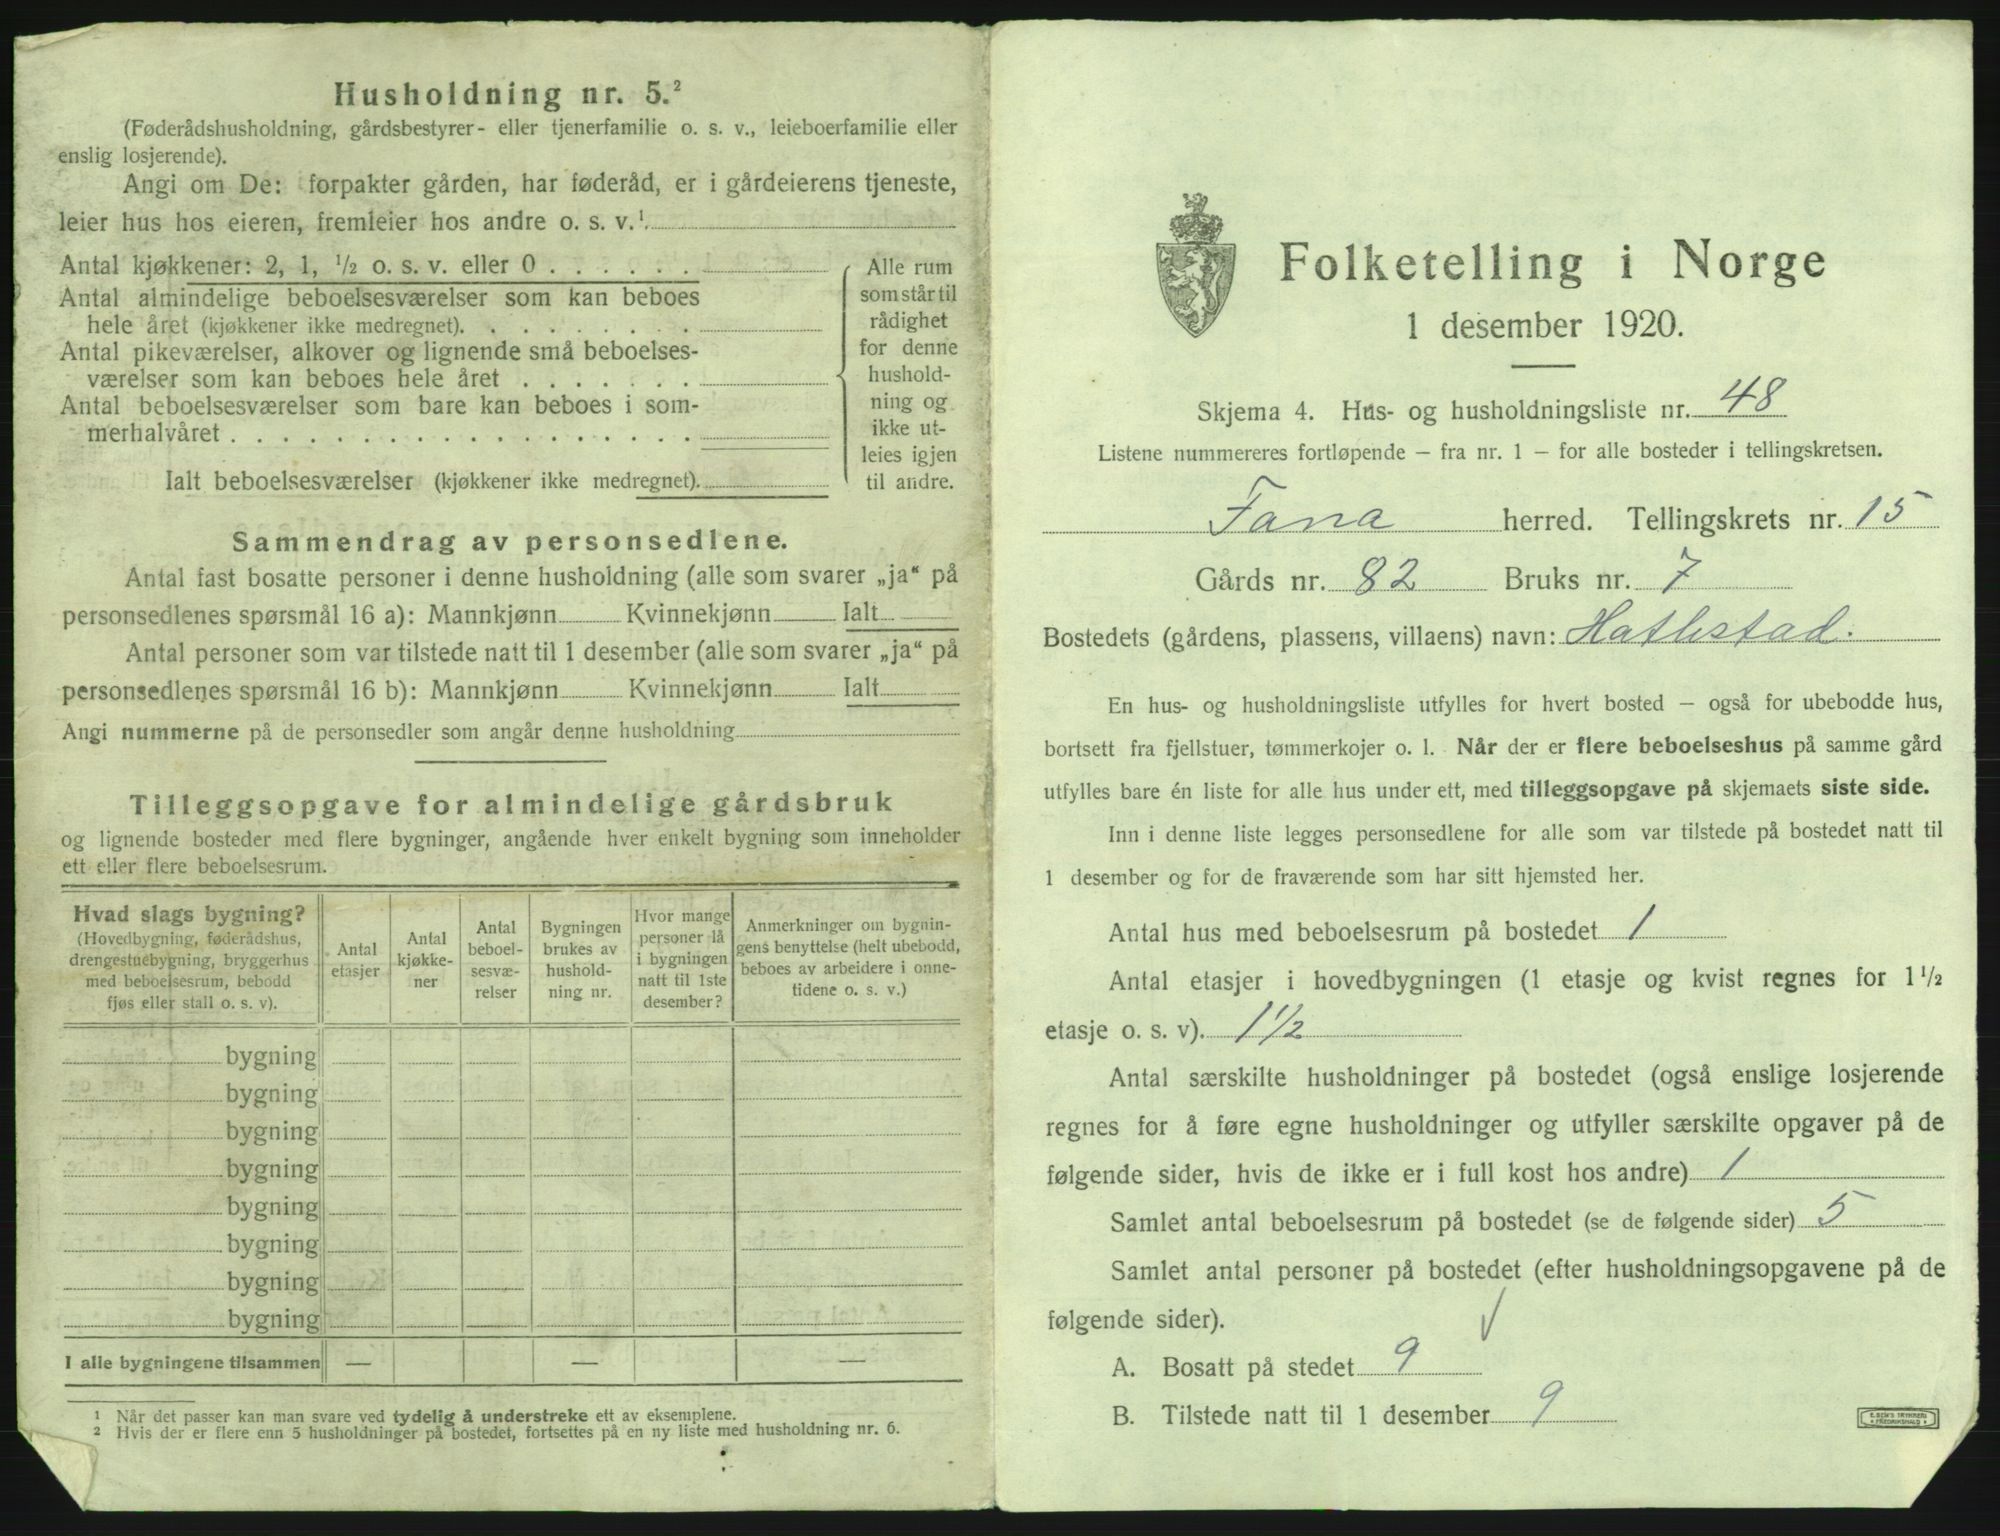 Husholdning nr. 5.²
(Føderådshusholdning, gårdsbestyrer- eller tjenerfamilie o. s. v., leieboerfamilie eller
enslig losjerende).
Angi om De: forpakter gården, har føderåd, er i gårdeierens tjeneste,
leier hus hos eieren, fremleier hos andre o. s. v.¹.
Antal kjøkkener: 2, 1, ½ o. s. v. eller 0 . . . . . .
Antal almindelige beboelsesværelser som kan beboes
hele året (kjøkkener ikke medregnet). . . . . . . . .
Antal pikeværelser, alkover og lignende små beboelses-
værelser som kan beboes hele året . . . . . . .
Antal beboelsesværelser som bare kan beboes i som-
merhalvåret . . . . . . . . . . . . . . . . . .
Ialt beboelsesværelser (kjøkkener ikke medregnet).
Alle rum
som står til
rådighet
for denne
hushold-
ning og
ikke ut-
leies igjen
til andre.
Sammendrag av personsedlene.
Antal fast bosatte personer i denne husholdning (alle som svarer „ja“ på
personsedlenes spørsmål 16 a): Mannkjønn Kvinnekjønn Ialt
Antal personer som var tilstede natt til 1 desember (alle som svarer „ja“ på
personsedlenes spørsmål 16 b): Mannkjønn Kvinnekjønn Ialt
Angi nummerne på de personsedler som angår denne husholdning
Tilleggsopgave for almindelige gårdsbruk
og lignende bosteder med flere bygninger, angående hver enkelt bygning som inneholder
ett eller flere beboelsesrum.
Hvad slags bygning?
(Hovedbygning, føderådshus,
drengestuebygning, bryggerhus
med beboelsesrum, bebodd
fjøs eller stall o. s. v).
Antal
etasjer
Antal
kjøkke-
ner
Antal
beboel-
sesvæ-
relser
Bygningen
brukes av
hushold-
ning nr.
Hvor mange
personer lå
i bygningen
natt til 1ste
desember?
Anmerkninger om bygnin-
gens benyttelse (helt ubebodd,
beboes av arbeidere i onne-
tidene o. s. v.)
bygning
bygning
bygning
bygning
bygning
bygning
bygning
bygning
I alle bygningene tilsammen — — —
¹ Når det passer kan man svare ved tydelig å understreke ett av eksemplene.
² Hvis der er flere enn 5 husholdninger på bostedet, fortsettes på en ny liste med husholdning nr. 6.
Folketelling i Norge
1 desember 1920.
Skjema 4. Hus- og husholdningsliste nr. 48
Listene nummereres fortløpende – fra nr. 1 – for alle bosteder i tellingskretsen.
Fana herred. Tellingskrets nr. 15
Gårds nr. 82 Bruks nr. 7
Bostedets (gårdens, plassens, villaens) navn: Hatlestad.
En hus- og husholdningsliste utfylles for hvert bosted – også for ubebodde hus,
bortsett fra fjellstuer, tømmerkojer o. l. Når der er flere beboelseshus på samme gård
utfylles bare én liste for alle hus under ett, med tilleggsopgave på skjemaets siste side.
Inn i denne liste legges personsedlene for alle som var tilstede på bostedet natt til
1 desember og for de fraværende som har sitt hjemsted her.
Antal hus med beboelsesrum på bostedet 1
Antal etasjer i hovedbygningen (1 etasje og kvist regnes for 1½
etasje o. s. v). 1½
Antal særskilte husholdninger på bostedet (også enslige losjerende
regnes for å føre egne husholdninger og utfyller særskilte opgaver på de
følgende sider, hvis de ikke er i full kost hos andre) 1
Samlet antal beboelsesrum på bostedet (se de følgende sider) 5
Samlet antal personer på bostedet (efter husholdningsopgavene på de
følgende sider).
A. Bosatt på stedet 9
B. Tilstede natt til 1 desember 9
E. SEM'S TRYKKERI
FREDRIKSHALD